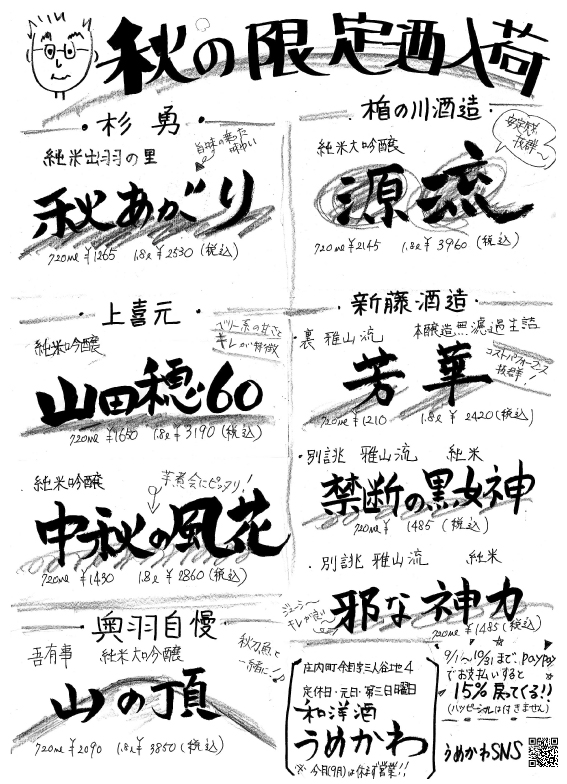 秋の限定酒入荷
・杉 勇・
純米出羽の里
旨味の乗った
味わい
秋あがり
720ml ¥1265 1.8ℓ ¥2530 (税込)
・楯の川酒造・
純米大吟醸
安定感
抜群〜
源流
720ml ¥2145 1.8ℓ ¥3960 (税込)
・上喜元・
純米吟醸
キレが特徴
山田穂60
720ml ¥1650 1.8ℓ ¥3190 (税込)
純米吟醸
芋煮会にピッタリ!
中秋の風花
720ml ¥1430 1.8ℓ ¥2860 (税込)
・奥羽自慢・
吾有事 純米大吟醸
秋刀魚と
一緒に!♪
山の頂
720ml ¥2090 1.8ℓ ¥3850 (税込)
・新藤酒造・
・裏 雅山流 本醸造無濾過生詰
芳華
コストパフォーマンス
抜群!
720ml ¥1210 1.8ℓ ¥2420 (税込)
・別誂 雅山流 純米
禁断の黒女神
720ml ¥1485 (税込)
・別誂 雅山流 純米
ジューシー
キレが良い
邪な神力
720ml ¥1485 (税込)
庄内町今田字三人谷地4
定休日・元日・第三日曜日
和洋酒
うめかわ
(※今月(9月)は休まず営業!!)
9/1〜10/31まで、paypay
でお支払いすると
15%戻ってくる!!
(ハッピーシールは付きません)
うめかわSNS